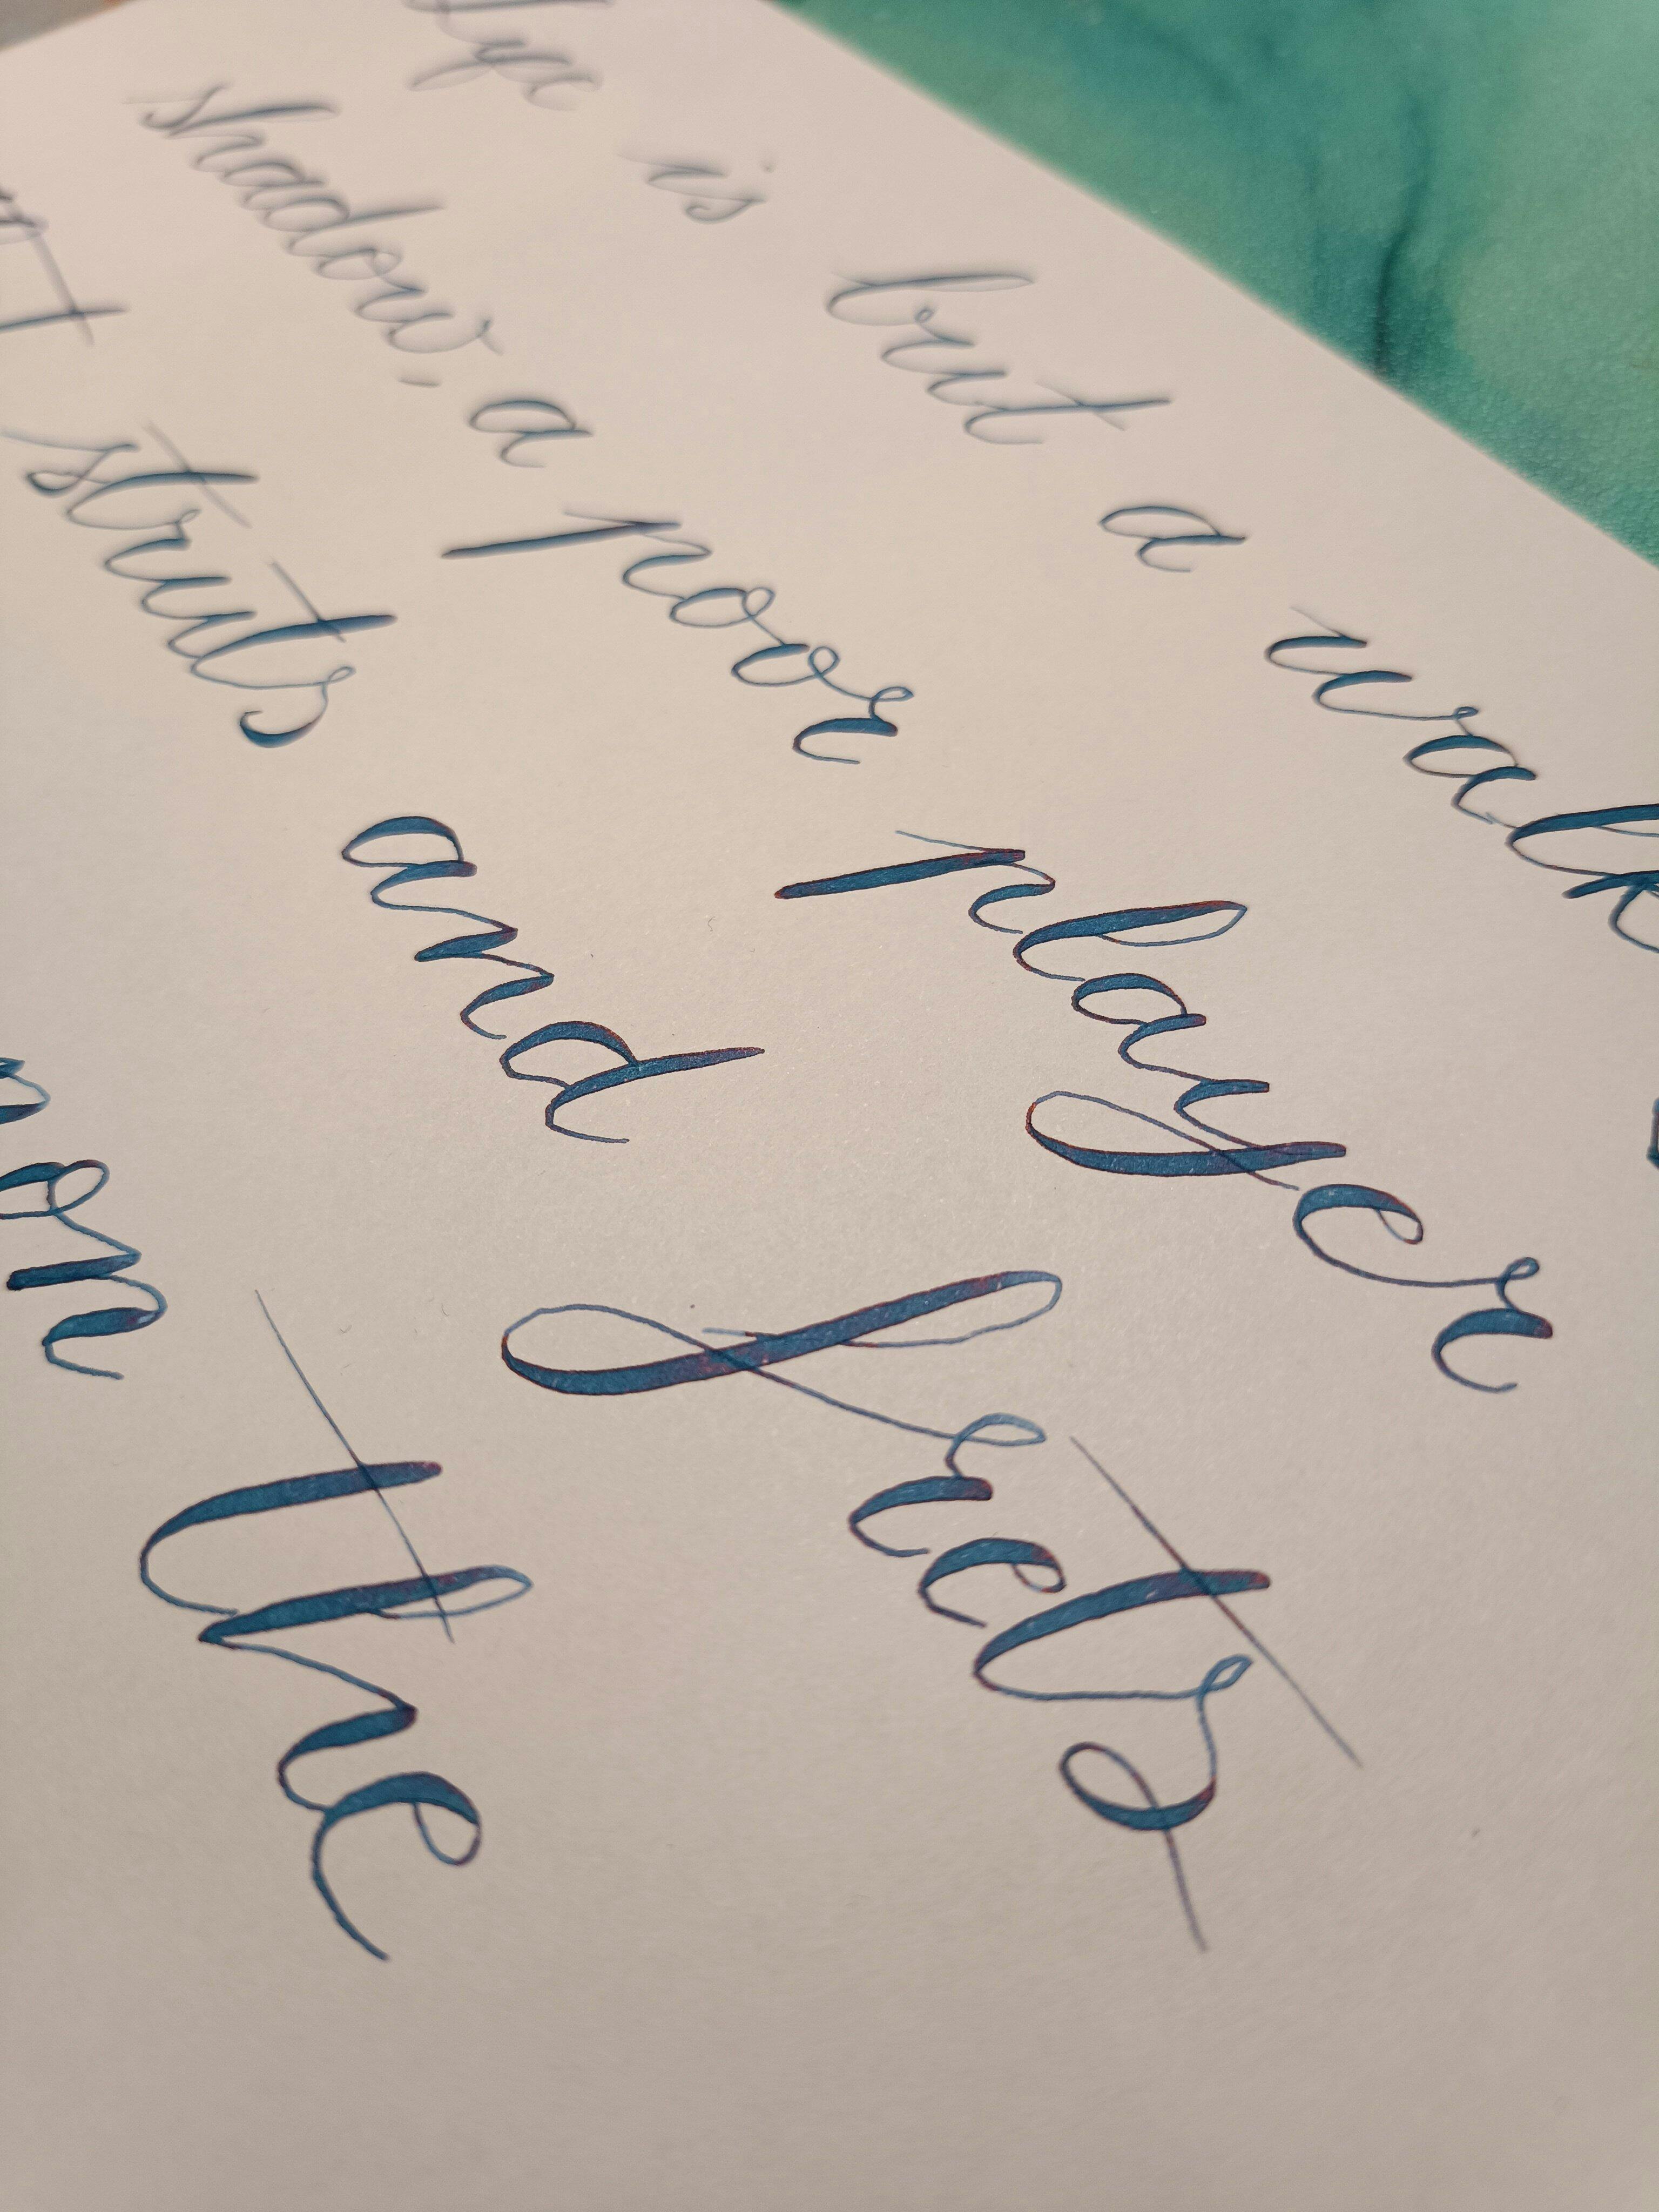 Life is but a walk
shadow, a poor player
struts and frets
on the